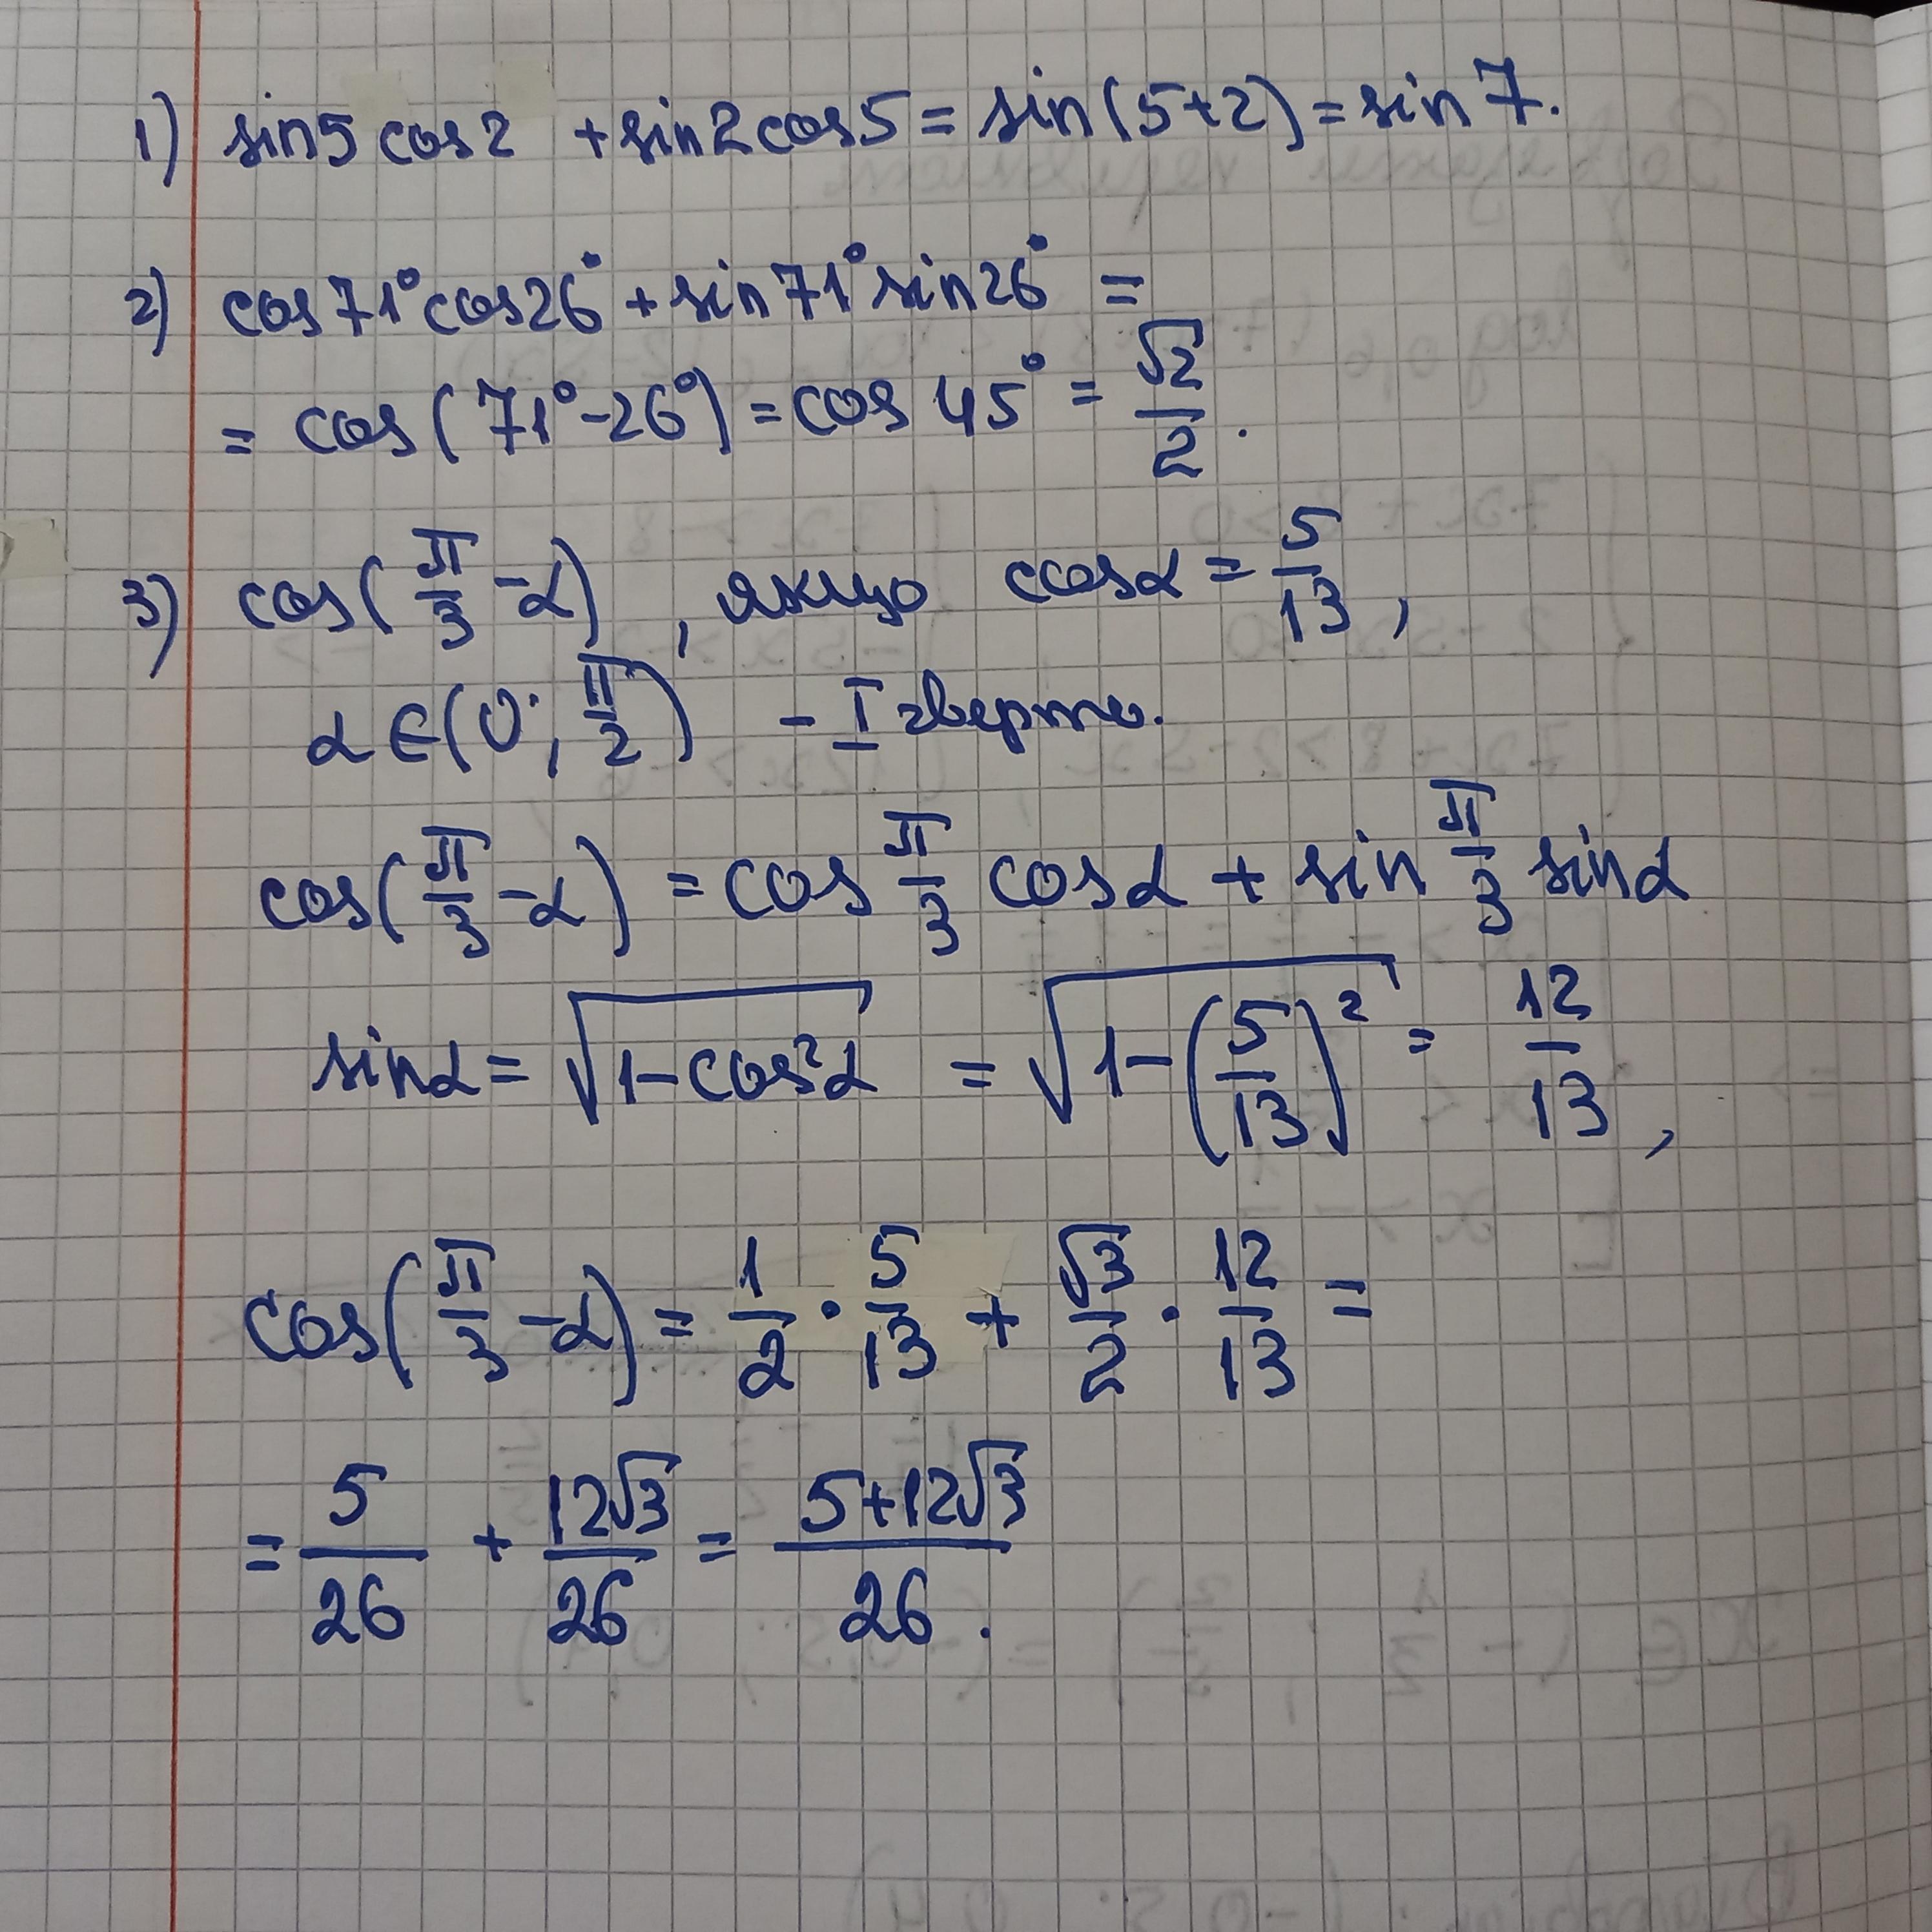 1) sin5 cos2 + sin2 cos5 = sin(5+2) = sin 7.
2) cos71° cos26° + sin71° sin26° =
= cos(71° - 26°) = cos 45° = √2/2.
3) cos(π/3 - α), якщо cosα = 5/13,
α ∈ (0; π/2) - I чверть.
cos(π/3 - α) = cos π/3 cosα + sin π/3 sinα
sinα = √(1 - cos²α) = √(1 - (5/13)²) = 12/13,
cos(π/3 - α) = 1/2 · 5/13 + √3/2 · 12/13 =
= 5/26 + 12√3/26 = (5+12√3)/26.